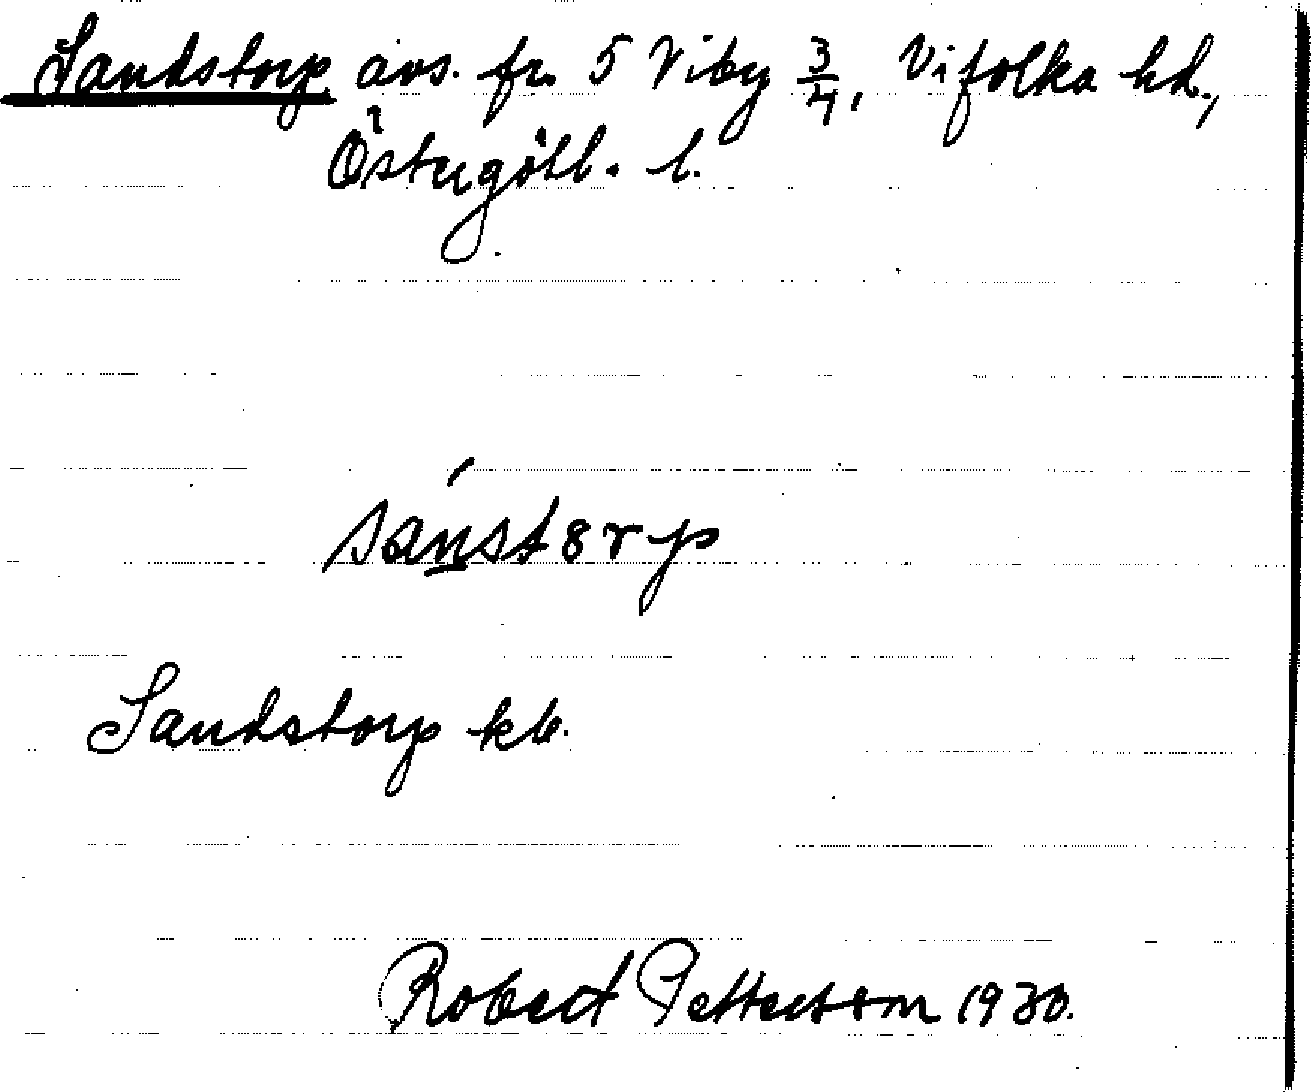 Sandstorp avs. fr. 5 Viby 3/4, Vifolka hd.,
Östergötl. l.
sánstɜrp
Sandstorp kb.
Robert Petterson 1930.